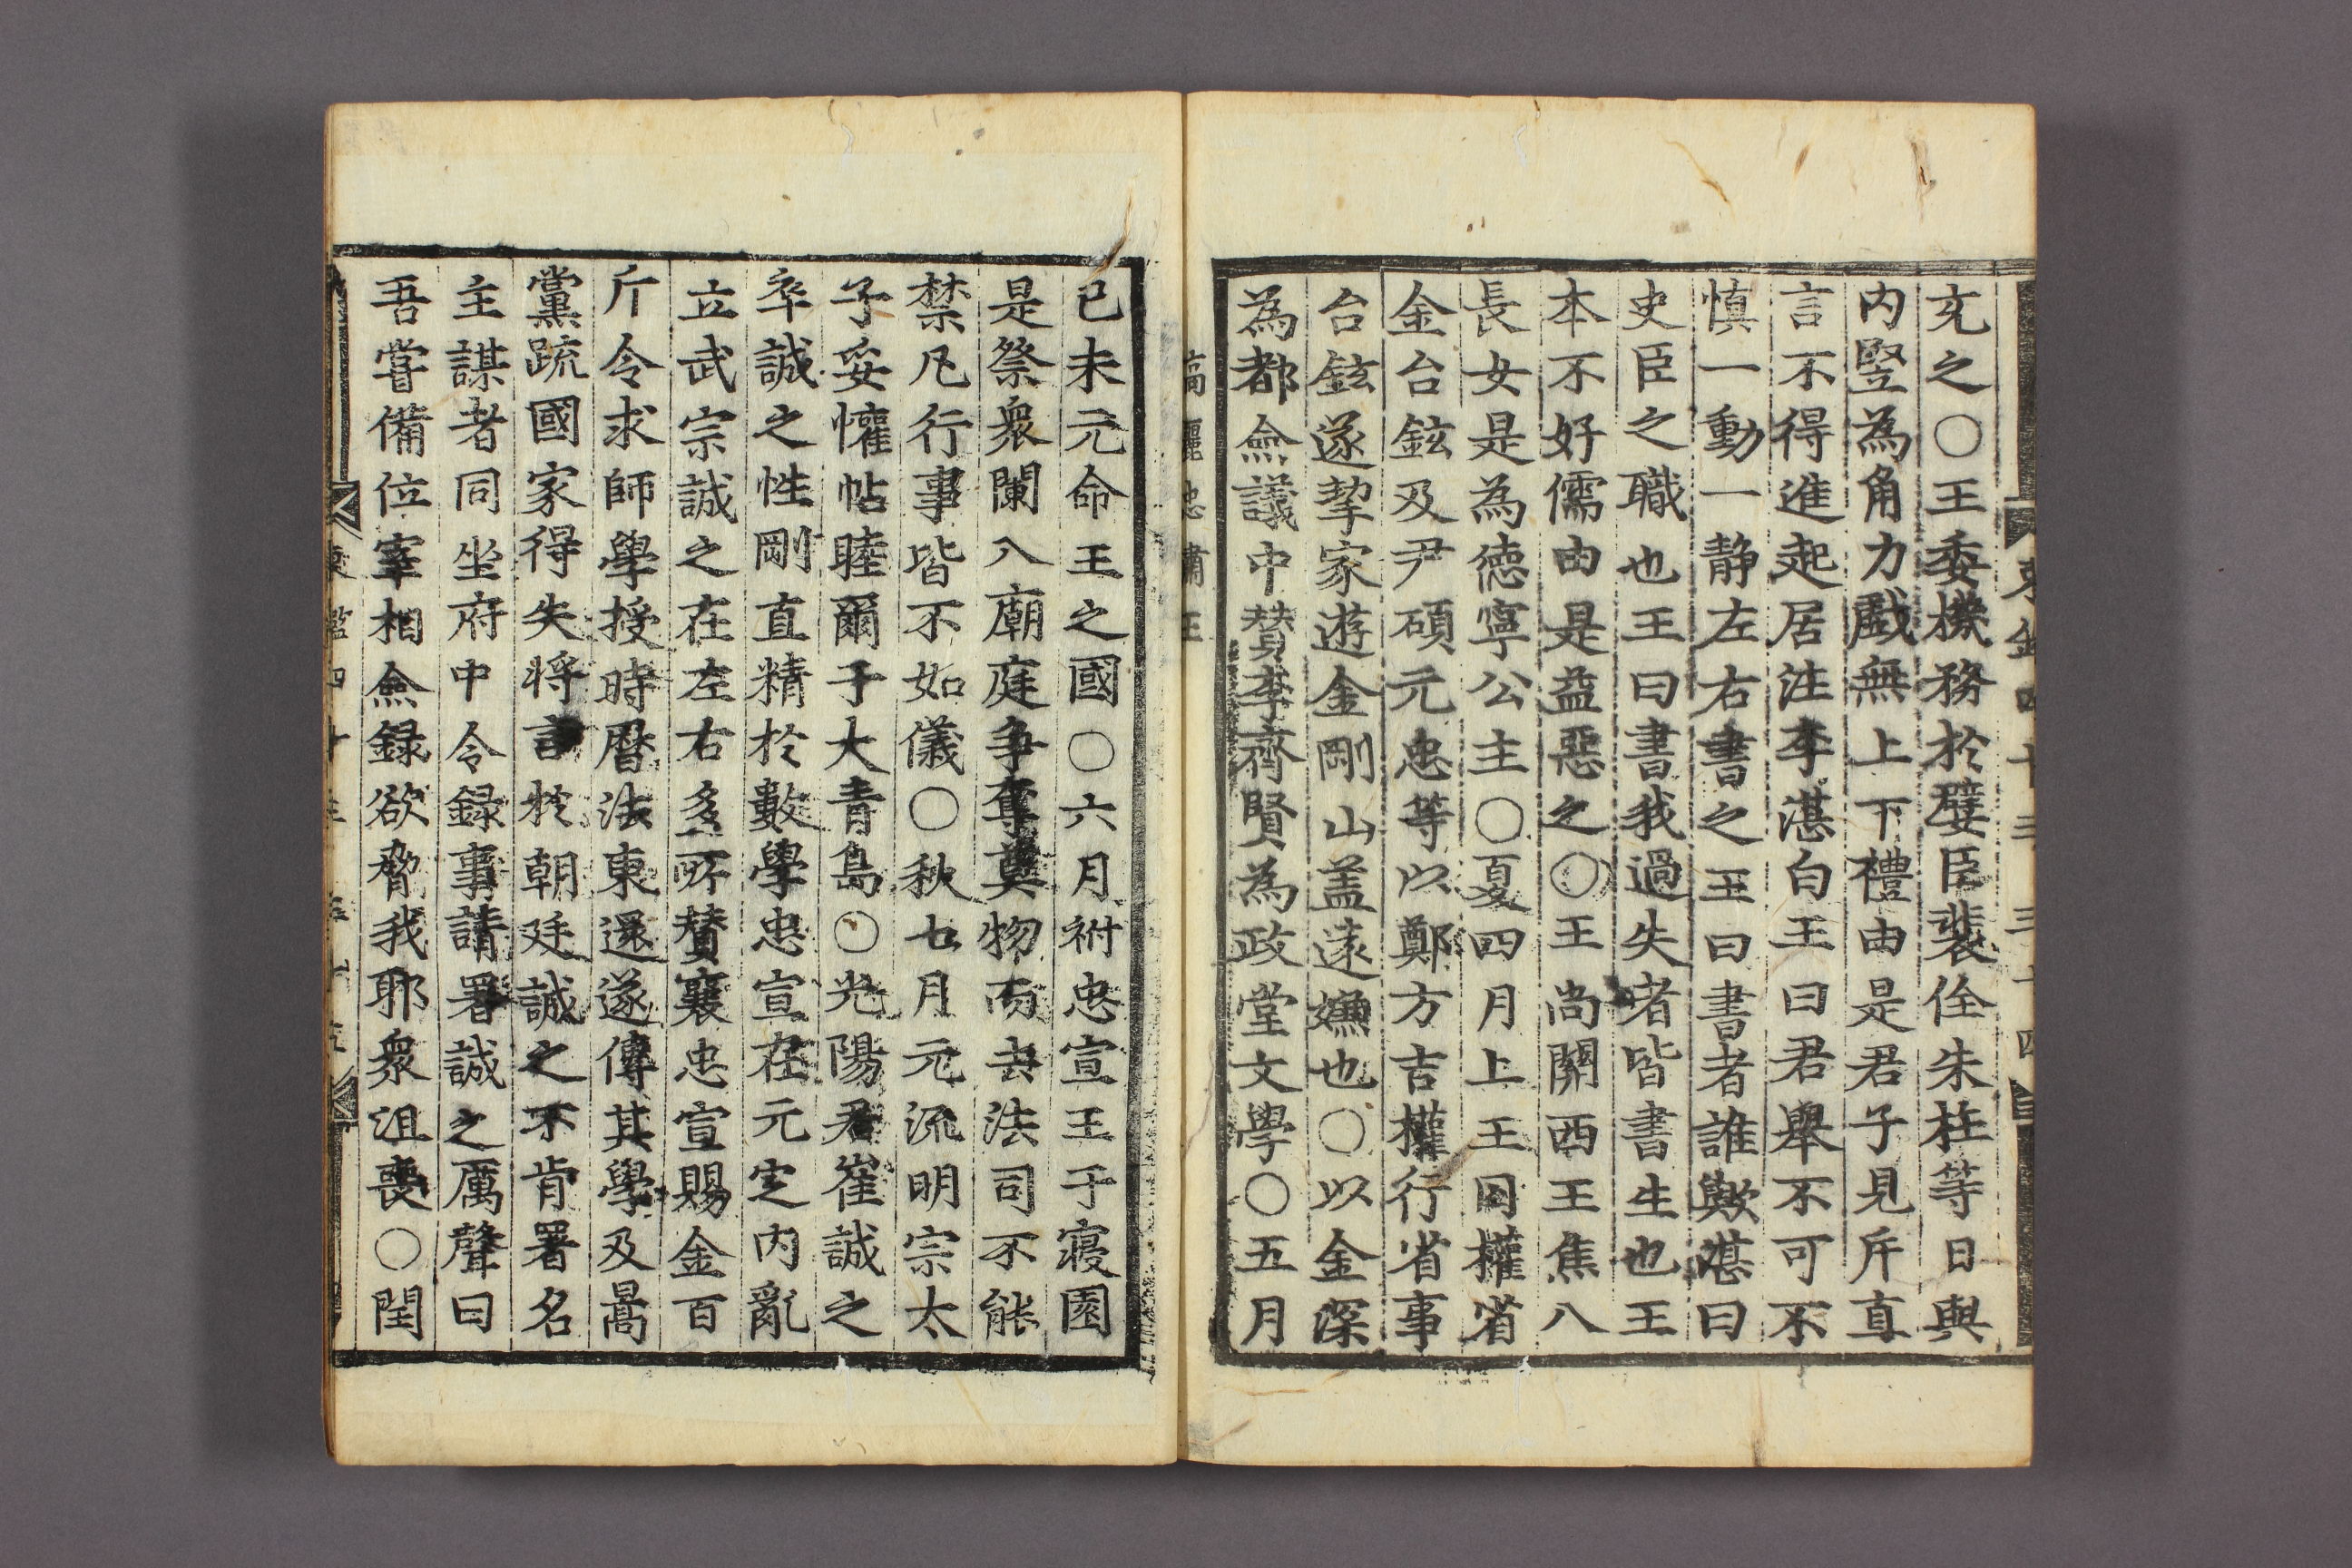 充之○王委機務於嬖臣裴佺朱柱等日與
内竪為角力戲無上下禮由是君子見斥直
言不得進起居注李湛白王曰君舉不可不
慎一動一静左右書之王曰書者誰歟湛曰
史臣之職也王曰書我過失者皆書生也王
本不好儒由是益惡之○王尚關西王焦八
長女是為德寧公主○夏四月上王囙權省
金台鉉及尹碩元忠等以鄭方吉權行省事
台鉉遂挈家遊金剛山盖遠嫌也○以金深
為都僉議中賛李齊賢為政堂文學○五月
高麗忠肅王
己未元命王之國○六月祔忠宣王于寢園
是祭衆闌八廟庭争奪奠物而去法司不能
禁凡行事皆不如儀○秋七月元流明宗太
子妥懽帖睦爾于大青島○光陽君崔誠之
卒誠之性剛直精於數學忠宣在元定内亂
立武宗誠之在左右多所賛襄忠宣賜金百
斤令求師學授時曆法東還遂傳其學及暠
黨䟽國家得失将言於朝廷誠之不肯署名
主謀者同坐府中令録事請署誠之厲聲曰
吾嘗備位宰相僉録欲脅我耶衆沮喪○閏